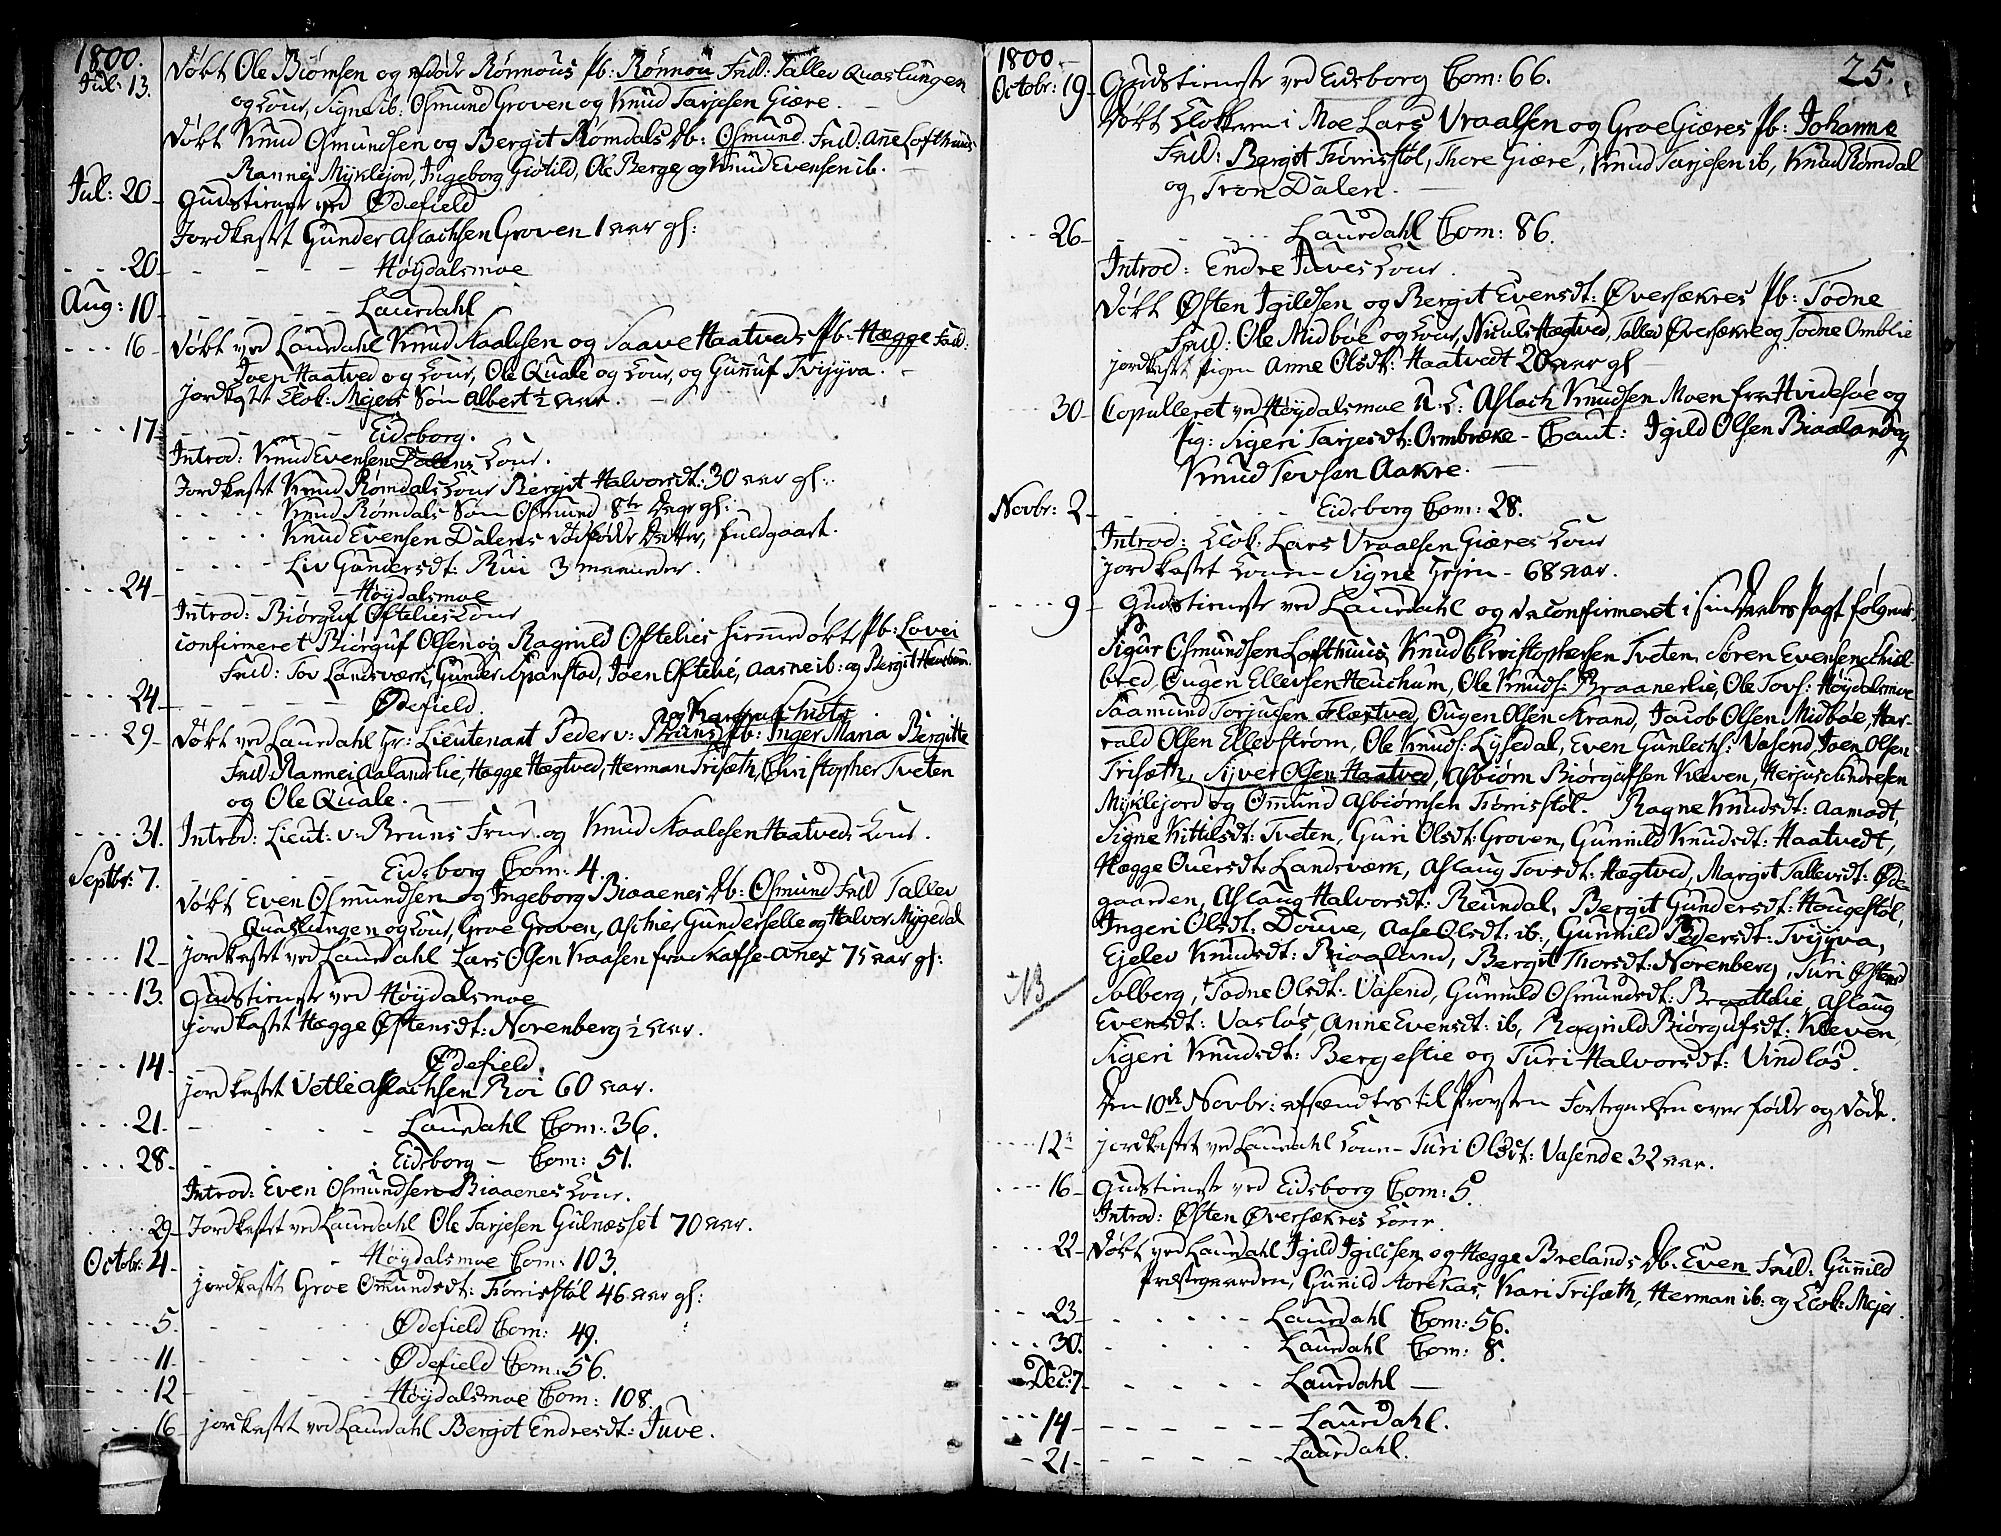 1800.
Jul: 13. Døbt Ole Biørnsen og Rønnous Pb: Rønnou Fad: Tallev Quaslungen
og Kone, Signe ib: Osmund Groven og Knud Tarjesen Giære.
Døbt Knud Osmundsen og Bergit Rømdals Db: Osmund. Fad: Anne Lofthuus
Rannei Myklejord, Ingeborg Giøtild, Ole Berge og Knud Evensen ib.
Jul: 20 Gudstieneste ved Ødefield
Jordkastet Gunder Aslachsen Groven 1 aar gl:
20 Høydalsmoe
Aug: 10 Laurdahl
16 Døbt ved Laurdahl Knud Aaalsen og Saave Haatveds Pb: Hægge Fad:
Joen Haatved og Kone, Ole Quale og Kone, og Gunuf Tvijyva.
Jordkastet Clok: Mejers Søn Albert ½ aar.
17 Eidsborg.
Introd: Knud Evensen Dalens Kone.
Jordkastet Knud Rømdals Kone Bergit Halvorsdt: 30 aar gl:
Knud Rømdals Søn Osmund 8te Dage gl:
Knud Evensen Dalens dødfødde Datter, fuldgaaet.
Liv Gundersdt: Rui 3 maaneder.
24 Høydalsmoe
Introd: Biørguf Oftelies Kone
confirmeret Biørguf Olsen og Ragnild Oftelies hiemmedøbt Pb: Lovei
Fad: Tov Landsværk, Gunder Spanstad, Joen Oftelie, Aasne ib: og Bergit Heuchum.
24 Ødefield.
29 Døbt ved Laurdahl Hr: Lieutenant Peder v: Bruns Pb: Inger Maria Bergitte
Fad: Rannei Aalandslie, Hægge Hægtved, Herman Trisæth, Christopher Tveten
og Ole Quale.
31. Introd: Lieut: v: Bruns Frue og Knud Aaalesen Haatveds Kone.
Septbr: 7. Eidsborg Com: 4.
Døbt Even Osmundsen og Ingeborg Biaaenes Db: Osmund Fad Tallev
Quaslungen og Kone, Groe Groven, Aslouf Gunderselle og Halvor Mygedal
12 jordkastet ved Laurdahl Lars Olsen Kaasen fra Rafse-anex 75 aar gl:
13. Gudstieneste ved Høydalsmoe
jordkastet Hægge Østensdt: Norenberg ½ aar.
14 Ødefield.
jordkastet Vetle Aslachsen Roi 60 aar.
21. Laurdahl Com: 36.
28 Eidsborg Com: 51.
Introd: Even Osmundsen Biaaenes Kone.
29 Jordkastet ved Laurdahl Ole Tarjesen Gulnæsset 70 aar.
Octobr: 4 Høydalsmoe Com: 103.
jordkastet Groe Omundsdt: Tiørristøl 46 aar gl:
5. Ødefield Com: 49.
11 Ødefield Com: 56.
12 Høydalsmoe Com: 108.
16 jordkastet ved Laurdahl Bergit Endresdt: Juve.
1800. 25.
Octobr: 19 Gudstieneste ved Eidsborg Com: 66.
Døbt Clokkeren i Moe Lars Vraalsen og Groe Giæres Pb: Johanne
Fad: Bergit Tiørristøl, Thore Giære, Knud Tarjesen ib, Knud Rømdal
og Tron Dalen.
26 Laurdahl Com: 86.
Introd: Endre Juves Kone.
Døbt Østen Igildsen og Bergit Evensdt: Øversækres Pb: Todne
Fad: Ole Midbøe og Kone, Niculs Hægtved, Tallev Øversækre og Todne Omblie
jordkastet Pigen Anne Olsdt: Haatvedt 20 aar gl
30 Copulleret ved Høydalsmoe U: K: Aslach Knudsen Moen fra Hvideføe og
Pig: Sigeri Tarjesdt: Ormbræke - Caut: Igild Olsen Biaaland og
Knud Tovsen Aakre.
Novbr: 2 Eidsborg Com: 28.
Introd: Clok: Lars Vraalsen Giæres Kone
jordkastet Konen Signe 68 aar.
9 Gudstieneste ved Laurdahl og da confirmeret i sin Daabes Pagt følgende
Sigur Osmundsen Lofthuus, Knud Christophersen Tveten, Søren Evensen Skiel-
bred, Ougen Ellevsen Heuchum, Ole Knuds: Braanerlie, Ole Tovs: Høydalsmoe
Saamund Torjusen Flaetved, Ougen Olsen Strand, Jacob Olsen Midbøe, Har-
rald Olsen Ellevstrøm, Ole Knuds: Lysedal, Even Gunlechs: Vasend, Joen Olsen
Trisæth, Sijver Olsen Haatved, Asbiørn Biørgufsen Kleven, Herjus Andresen
Myklejord og Omund Asbiørnsen Tiørristøl. Ragne Knudsdt: Aamodt,
Signe Kittilsdt: Tveten, Guri Olsdt: Groven, Gunnild Knudsdt: Haatvedt,
Hægge Ouersdt: Landsværk, Aslaug Tovsdt: Hægtved, Margit Tallevsdt: Øde-
gaarden, Aslaug Halvorsdt: Reundal, Bergit Gundersdt: Haugestøl,
Ingeri Olsdt: Douve, Aase Olsdt: ib:, Gunnild Pedersdt: Tvijyva,
Ejelev Knudsdt: Biaaland, Bergit Thorsdt: Norenberg, Turi Østensd
NB Solberg, Todne Olsdt: Vasend, Gunnild Osmundsdt: Braattelie, Aslaug
Evensdt: Vasløs, Anne Evensdt: ib, Ragnild Biørgufsdt: Kleven
Sigeri Knudsdt: Bergestie og Turi Halvorsdt: Vindløs.
Den 10de Novbr: afsændtes til Provsten Fortegnelsen over fødde og døde.
12 jordkastet ved Laurdahl Konen Turi Olsdt: Vasende 32 aar.
16 Gudstieneste ved Eidsborg Com: 5.
Introd: Østen Øversækres Kone.
22 Døbt ved Laurdahl Igild Igildsen og Hægge Brelands Db: Even Fad: Gunnild
Præstegaarden, Gunnild Aarekas, Kari Trisæth, Herman ib: og Clok: Mejer.
23 Laurdahl Com: 56.
30. Laurdahl Com: 8.
Dec: 7 Laurdahl
14 Laurdahl.
21 Laurdahl.